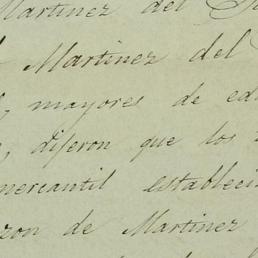 Martinez del
Martinez del
mayores de eda
dijeron que los
mercantil estableci
zon de Martinez